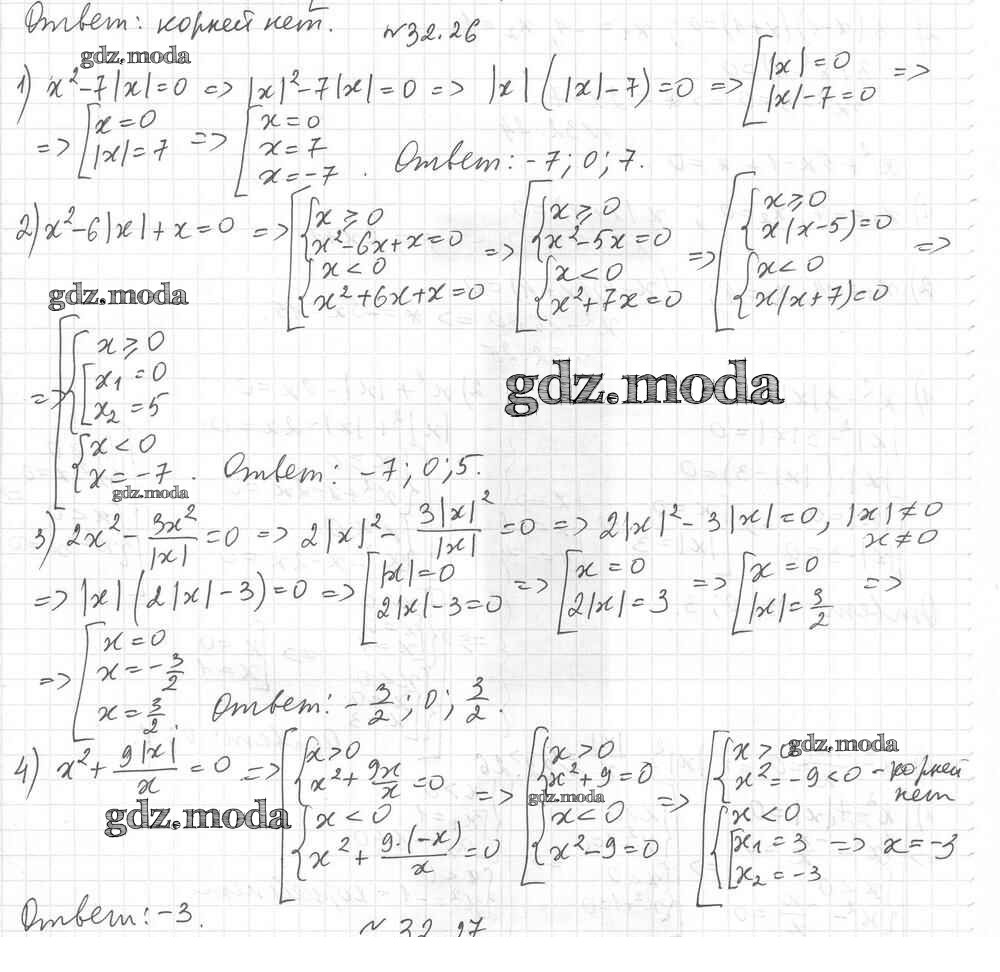 Ответ: корней нет. №32.26
gdz.moda
1) x²-7|x|=0 => |x|²-7|x|=0 => |x|(|x|-7)=0 => [|x|=0 |x|-7=0 =>
=> [x=0 |x|=7 => [x=0 x=7 x=-7. Ответ: -7; 0; 7.
2) x²-6|x|+x=0 => [{x⩾0 x²-6x+x=0 {x<0 x²+6x+x=0 => [{x⩾0 x²-5x=0 {x<0 x²+7x=0 => [{x⩾0 x(x-5)=0 {x<0 x(x+7)=0 =>
gdz.moda
=> [{x⩾0 [x₁=0 x₂=5 {x<0 x=-7. Ответ: -7; 0; 5.
gdz.moda
gdz.moda
3) 2x²-3x²/|x|=0 => 2|x|²-3|x|²/|x|=0 => 2|x|²-3|x|=0, |x|≠0 x≠0
=> |x|(2|x|-3)=0 => [|x|=0 2|x|-3=0 => [x=0 2|x|=3 => [x=0 |x|=3/2 =>
=> [x=0 x=-3/2 x=3/2. Ответ: -3/2; 0; 3/2.
4) x²+9|x|/x=0 => [{x>0 x²+9x/x=0 {x<0 x²+9·(-x)/x=0 => [{x>0 x²+9=0 {x<0 x²-9=0 => [{x>0 x²=-9<0 - корней нет {x<0 [x₁=3 x₂=-3 => x=-3
gdz.moda
gdz.moda
gdz.moda
Ответ: -3. №32.27